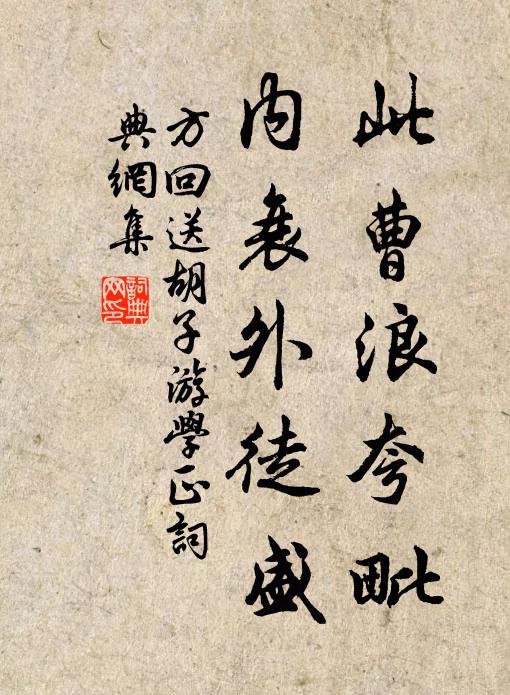 此曹浪夸毗
内衰外徒盛
方回送胡子游學正詞
典網集
詞典
网印